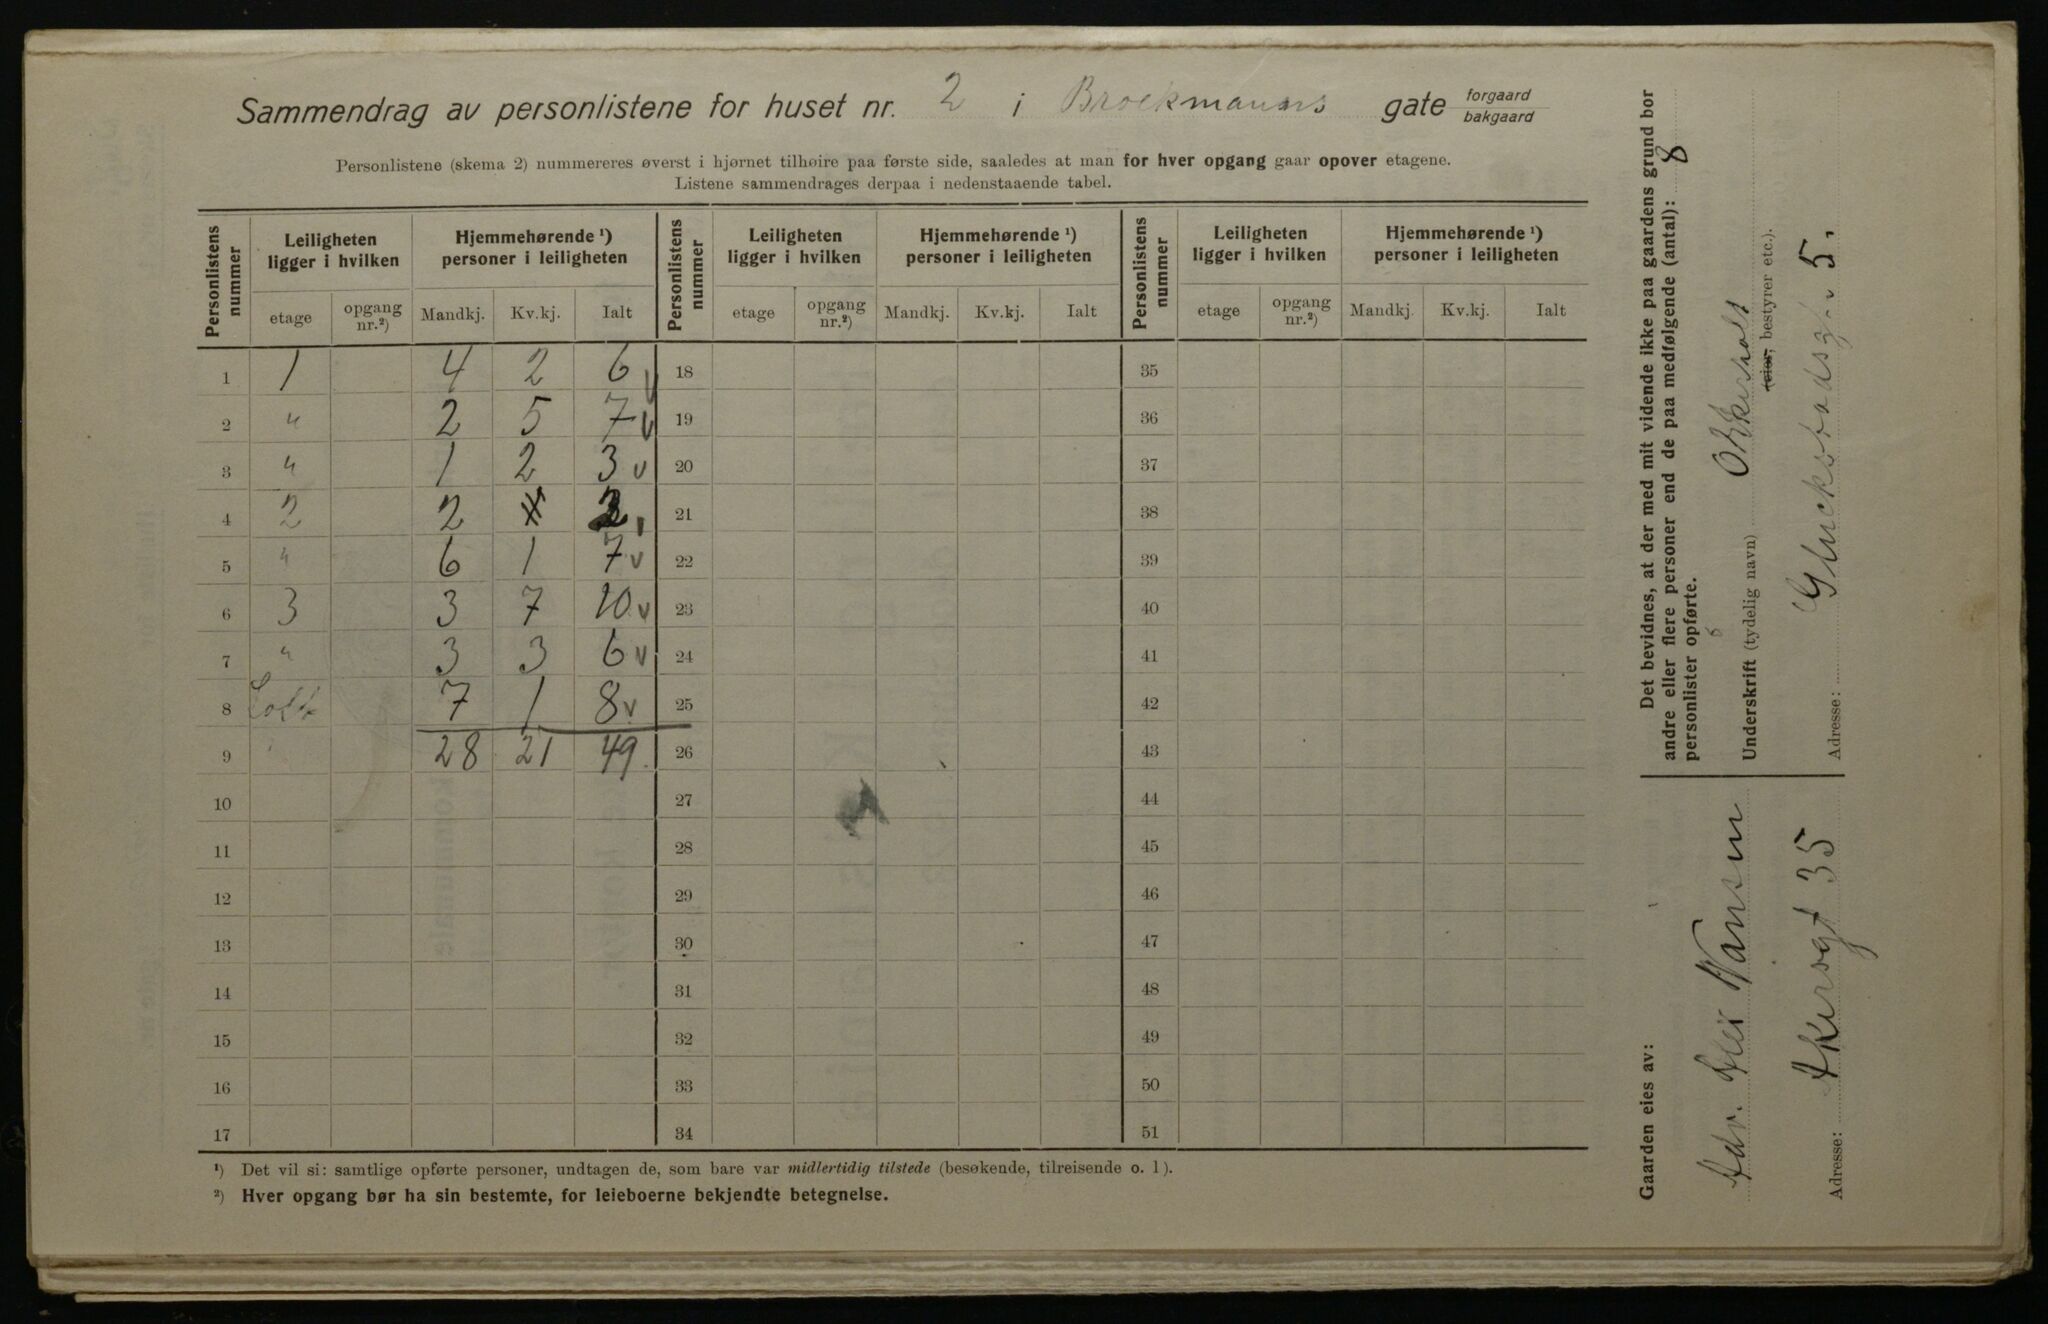 Sammendrag av personlistene for huset nr. 2 i Brockmanns gate forgaard
bakgaard
Personlistene (skema 2) nummereres øverst i hjørnet tilhøire paa første side, saaledes at man for hver opgang gaar opover etagene.
Listene sammendrages derpaa i nedenstaaende tabel.
Personlistens nummer | Leiligheten ligger i hvilken | Hjemmehørende ¹) personer i leiligheten | Personlistens nummer | Leiligheten ligger i hvilken | Hjemmehørende ¹) personer i leiligheten | Personlistens nummer | Leiligheten ligger i hvilken | Hjemmehørende ¹) personer i leiligheten
etage | opgang nr.²) | Mandkj. | Kv.kj. | Ialt | etage | opgang nr.²) | Mandkj. | Kv.kj. | Ialt | etage | opgang nr.²) | Mandkj. | Kv.kj. | Ialt
1 | 1 | 4 | 2 | 6 v | 18 | 35
2 | " | 2 | 5 | 7 v | 19 | 36
3 | " | 1 | 2 | 3 v | 20 | 37
4 | 2 | 2 | 2 | 21 | 38
5 | " | 6 | 1 | 7 v | 22 | 39
6 | 3 | 3 | 7 | 10 v | 23 | 40
7 | " | 3 | 3 | 6 v | 24 | 41
8 | Loft | 7 | 1 | 8 v | 25 | 42
9 | 28 | 21 | 49 | 26 | 43
10 | 27 | 44
11 | 28 | 45
12 | 29 | 46
13 | 30 | 47
14 | 31 | 48
15 | 32 | 49
16 | 33 | 50
17 | 34 | 51
¹) Det vil si: samtlige opførte personer, undtagen de, som bare var midlertidig tilstede (besøkende, tilreisende o. l).
²) Hver opgang bør ha sin bestemte, for leieboerne bekjendte betegnelse.
Det bevidnes, at der med mit vidende ikke paa gaardens grund bor
andre eller flere personer end de paa medfølgende (antal): 8
personlister opførte.
Underskrift (tydelig navn)
(eier, bestyrer etc.).
Adresse: Glucksstadsg. 5.
Gaarden eies av:
Adv. Nansen
Adresse: Akersgt 35